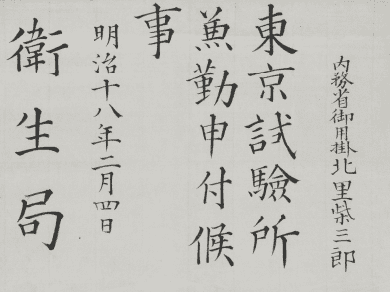 内務省御用掛北里柴三郎
東京試驗所
兼勤申付候
事
明治十八年二月四日
衛生局